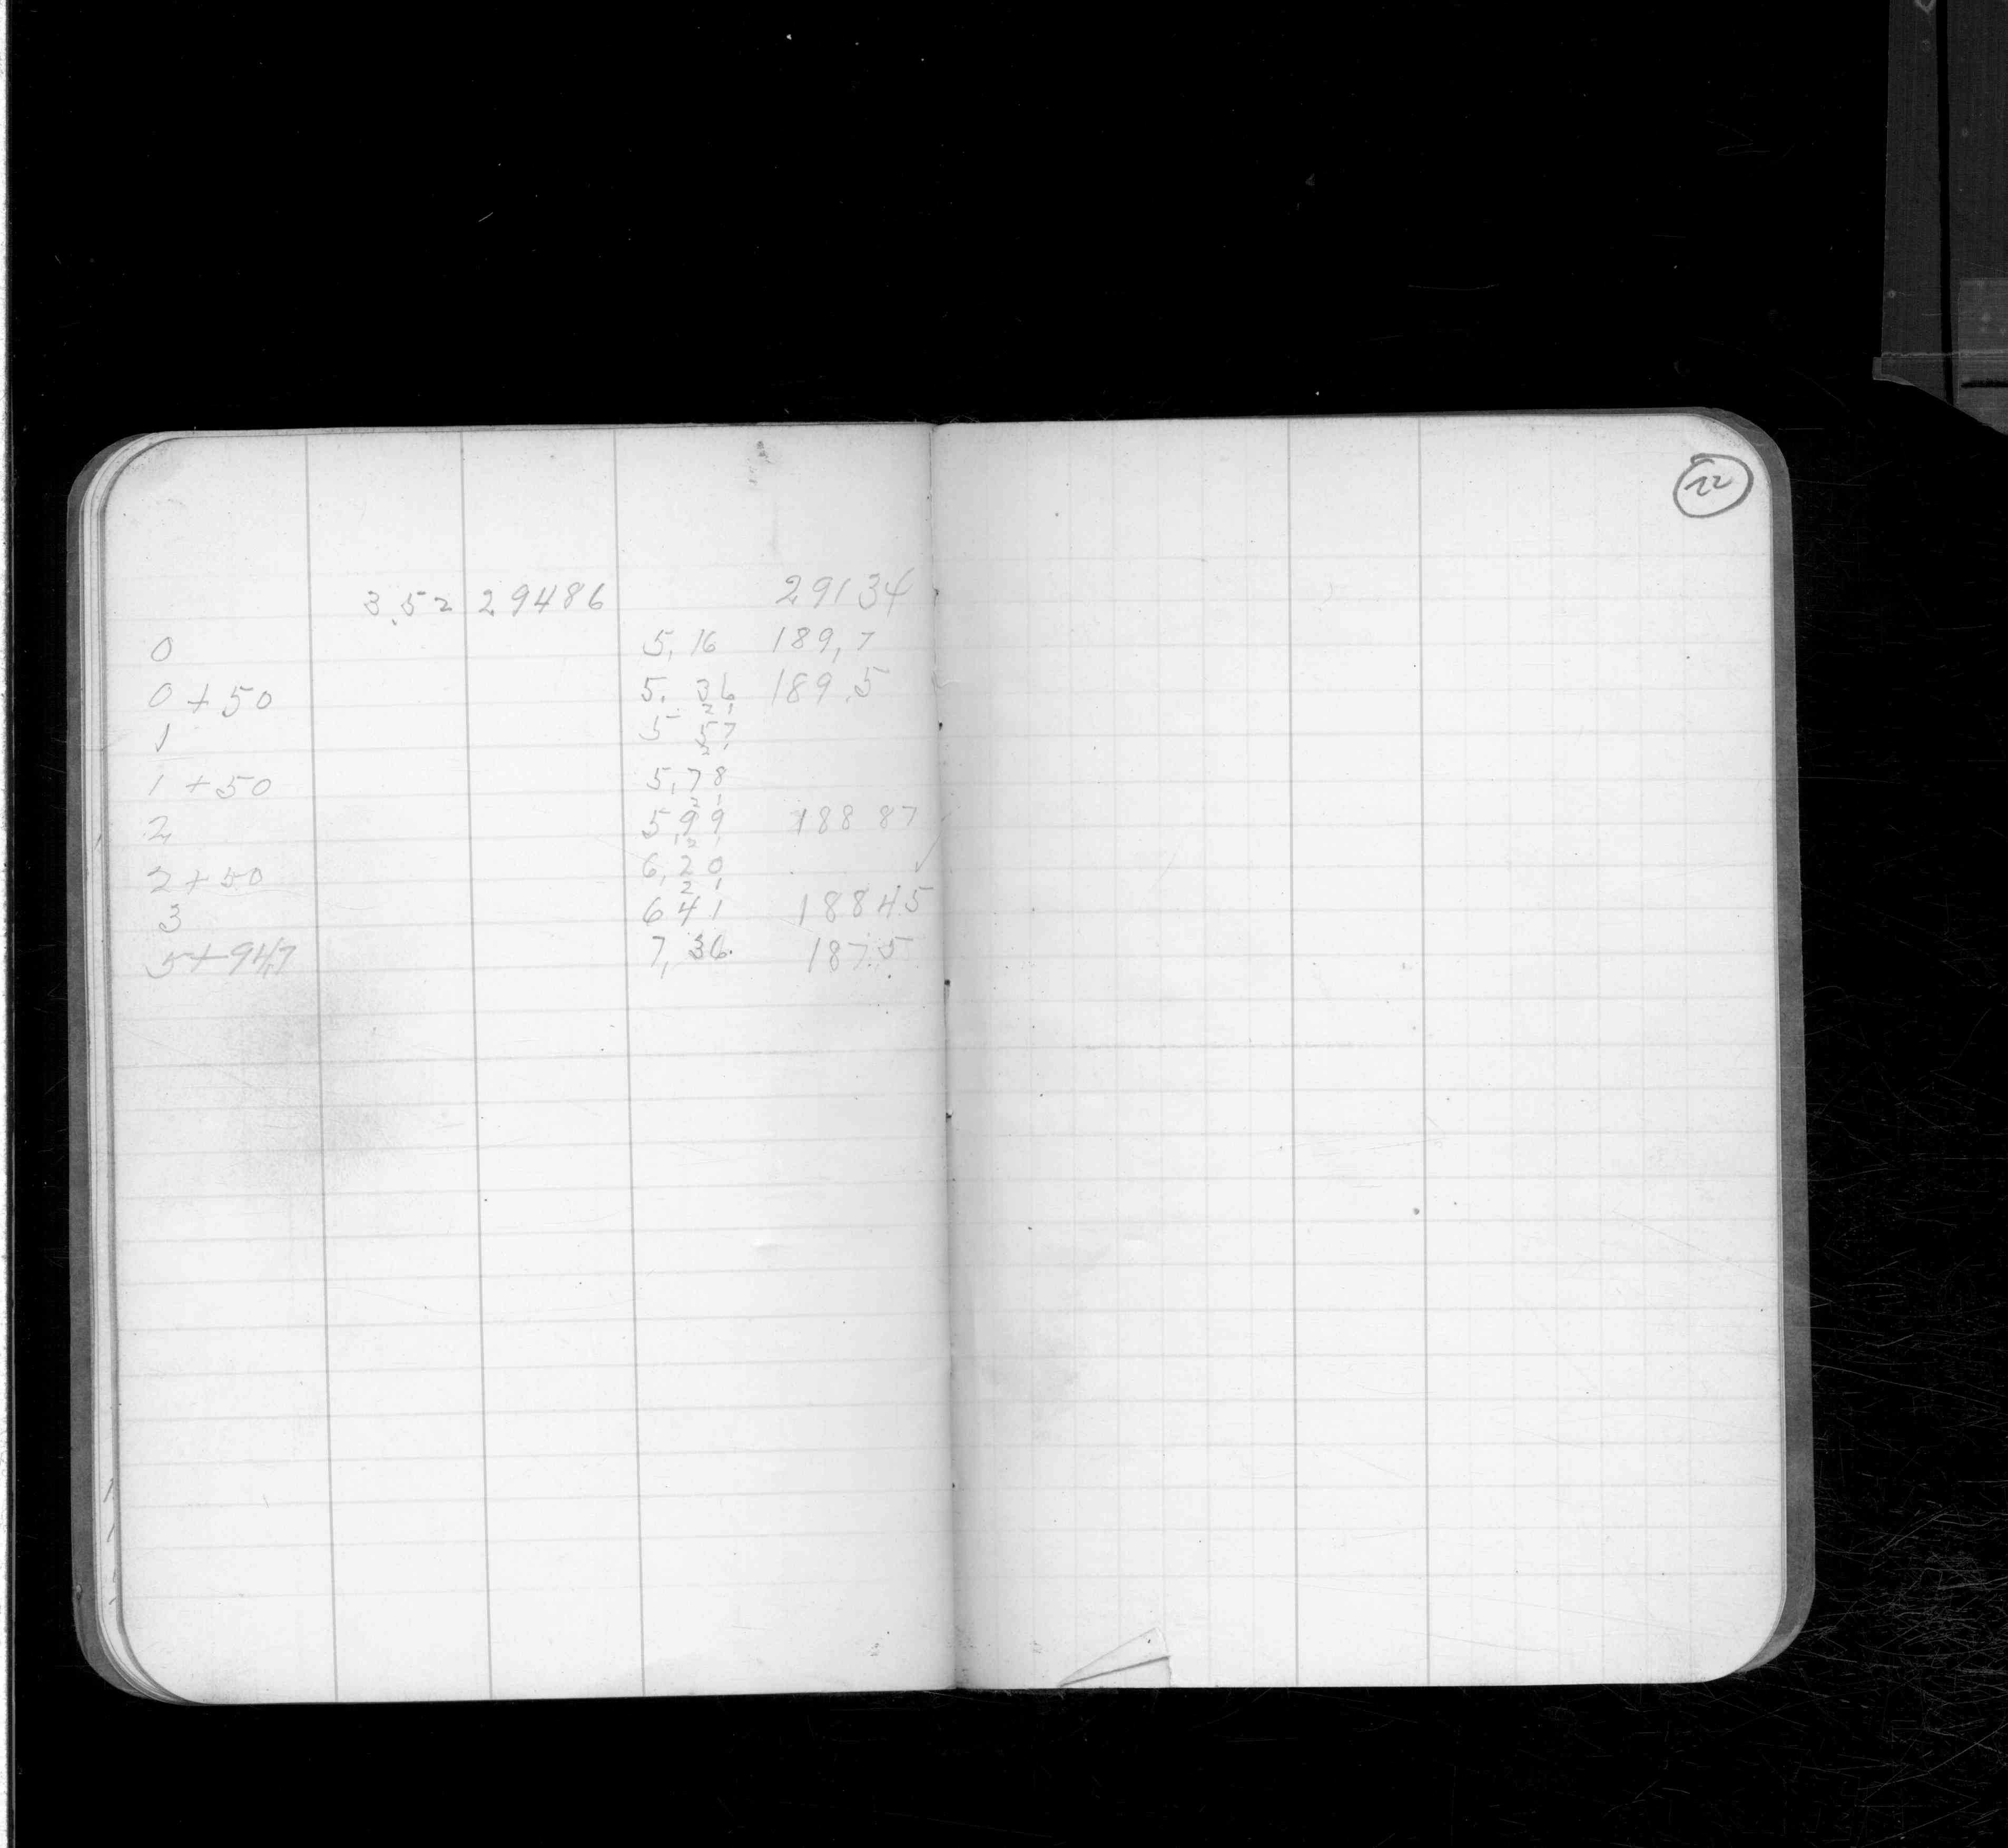 22
3.52 29486 29134
0 5,16 189,7
0 + 50 5. 36 189.5
21
1 5 57
21
1 + 50 5,78
21
2 5,99 188 87
21
2 + 50 6,20
21
3 6 41 188 45
5 + 94,7 7, 36. 187.5